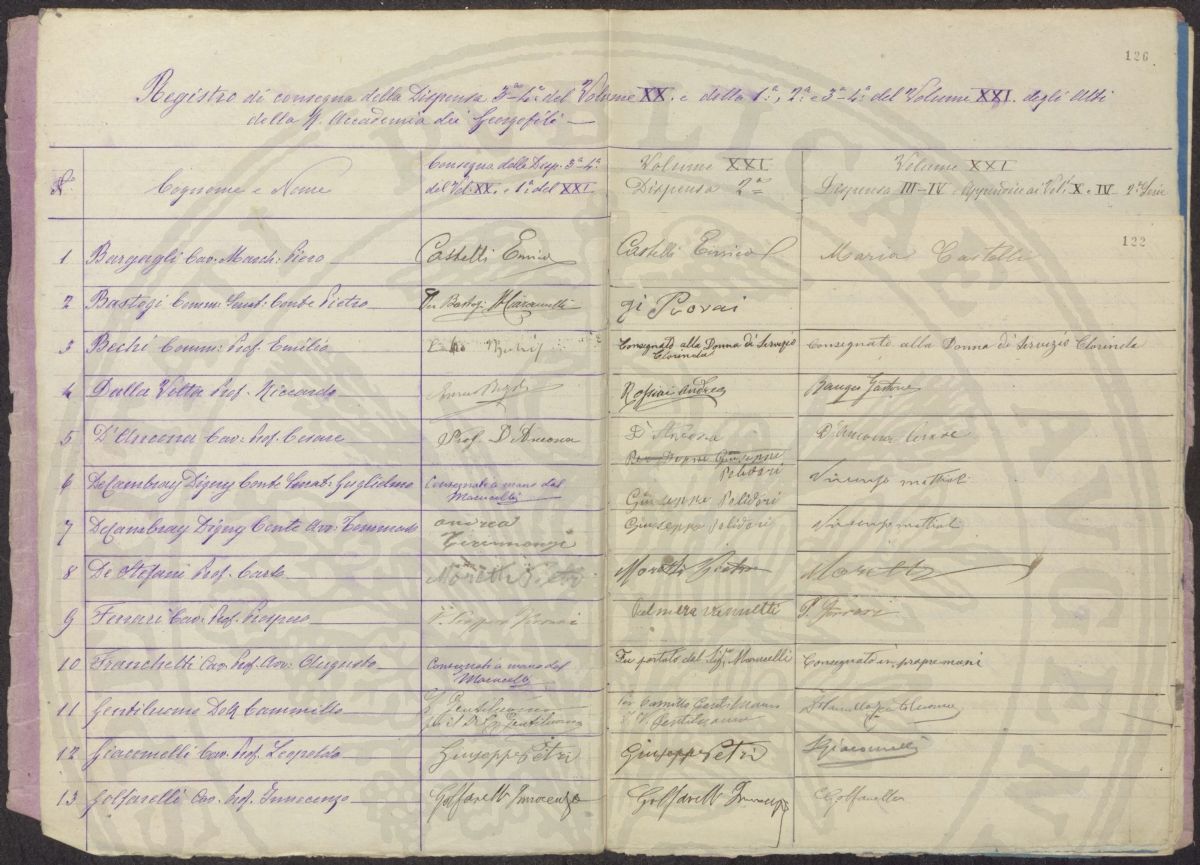 126
Registro di consegna della Dispensa 3ª-4ª del Volume XX. e della 1ª, 2ª e 3ª-4ª del Volume XXI. degli Atti
della R. Accademia dei Georgofili
Nº
Cognome e Nome
Consegna delle Disp. 3ª-4ª
del Vol. XX. e 1ª del XXI
Volume XXI
Dispensa 2ª
Volume XXI
Dispensa III-IV e Appendice ai Vol.i X e IV 2ª Serie
122
1 Bargagli Cav. March. Piero
Castelli Enrico
Castelli Enrico
Maria Castelli
2 Bastogi Comm. Senat. Conte Pietro
Per Bastogi
3 Bechi Comm: Prof. Emilio
Consegnato alla Donna di Servizio
Clorinda
Consegnato alla Donna di Servizio Clorinda
4 Dalla Volta Prof. Riccardo
Andrea
5 D'Ancona Cav. Prof. Cesare
Prof. D'Ancona
D'Ancona
D'Ancona Cesare
Per Giuseppe
Polidori
6 De Cambray Digny Conte Senat. Guglielmo
Consegnati a mano dal
Marucelli
Giuseppe Polidori
7 De Cambray Digny Conte Avv. Tommaso
Andrea
Giuseppe Polidori
8 De Stefani Prof. Carlo
Moretti Pietro
Moretti Pietro
Moretti
9 Ferrari Cav. Prof. Prospero
Palmira Vannetti
P. Ferrari
10 Franchetti Cav. Prof. Avv. Augusto
Consegnati a mano dal
Marucelli
Fu portato dal Sig. Marucelli
Consegnato in proprie mani
11 Gentiluomo Dott. Cammillo
Gentiluomo
per il D. C. Gentiluomo
Per Camillo Gentiluomo
V. Gentiluomo
12 Giacomelli Cav. Prof. Leopoldo
Giuseppe Petri
Giuseppe Petri
LGiacomelli
13 Golfarelli Cav. Prof. Innocenzo
Golfarelli Innocenzo
Golfarelli Innocenzo
Golfarelli